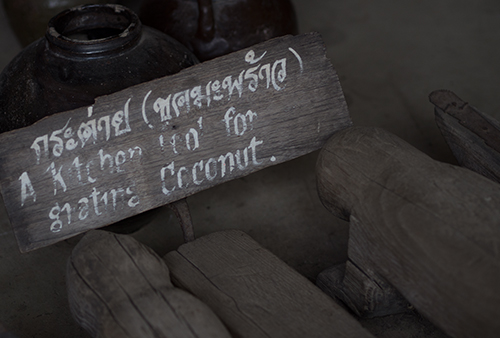 กระต่าย (ขูดมะพร้าว)
A Kitchen tool for
grating Coconut.